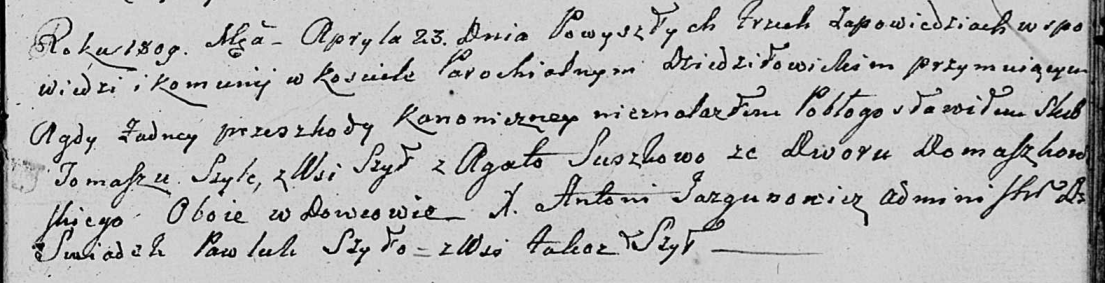 Roku 1809. Mca - Apryla 23. Dnia Powyszłych trzech Zapowiedziach w spo
wiedzi i komunij w kosciele Parochialnym Dziedziłowickim przymuiącym
Agdy Zadney przeszkody Kanoniczney nieznalazłem Pobłogosławiłem Slub
Tomaszu Szyłe, z Wsi Szył z Agato Suszkowo ze Dworu Domaszkow
skiego Oboie w Dowcowie X. Antoni Jazgunowicz administr Dz
Swiadek Pawluk Szyło = z Wsi takoż Szył